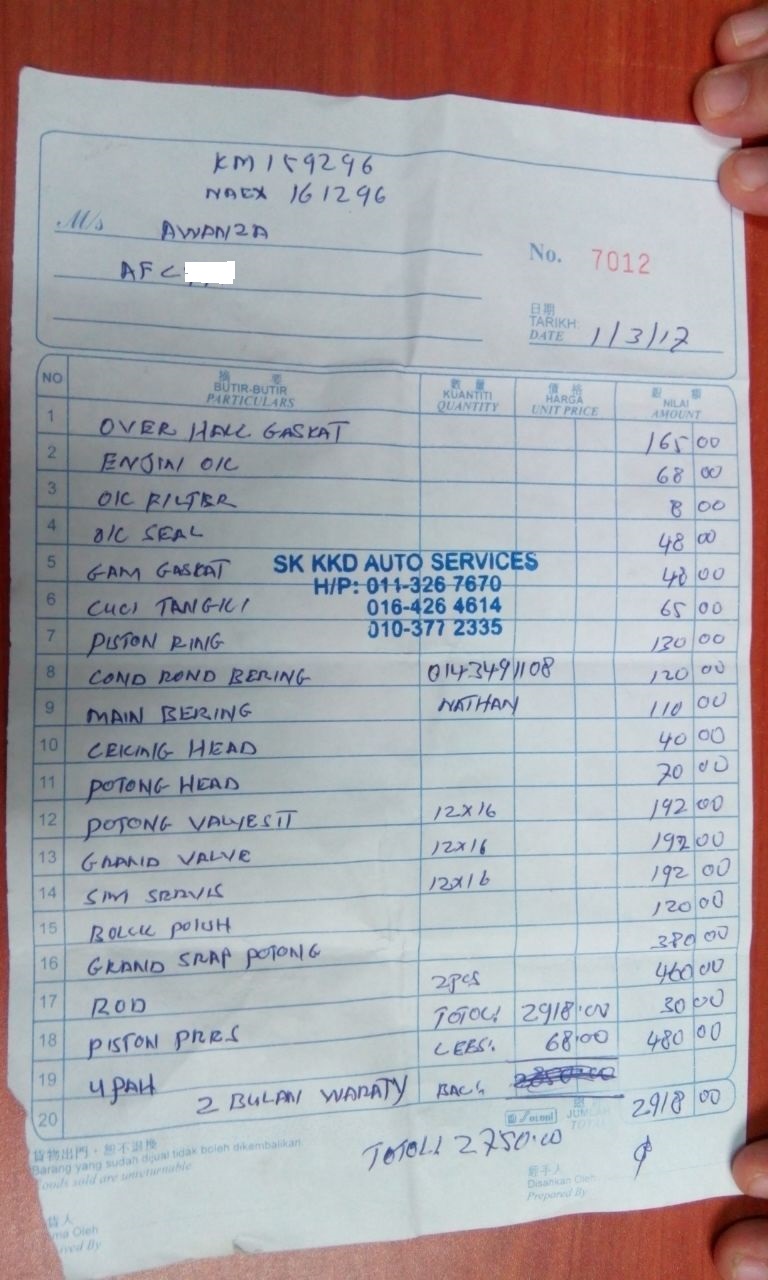 KM 159296
NAEX 161296
M/s AWANZA
AFC
No. 7012
日期
TARIKH:
DATE 1/3/17
NO 摘要 數量 價格 銀額
BUTIR-BUTIR KUANTITI HARGA NILAI
PARTICULARS QUANTITY UNIT PRICE AMOUNT
1 OVER HALL GASKAT 165 00
2 ENJIN OIL 68 00
3 OIL FILTER 8 00
4 OIL SEAL 48 00
5 GAM GASKAT 48 00
SK KKD AUTO SERVICES
H/P: 011-326 7670
016-426 4614
010-377 2335
6 CUCI TANGKI 65 00
7 PISTON RING 130 00
8 COND ROND BERING 0143491108 120 00
9 MAIN BERING NATHAN 110 00
10 CEKING HEAD 40 00
11 POTONG HEAD 70 00
12 POTONG 12x16 192 00
13 GRAND VALVE 12x16 192 00
14 SIM SERVIS 12x16 192 00
15 BOLCK 120 00
16 GRAND SRAP POTONG 380 00
17 ROD 2PCS 460 00
18 PISTON PRRS TOTOL: 2918.00 30 00
19 UPAH LEBS: 68.00 480 00
20 2 BULAN WARATY BAL:
JUMLAH
TOTAL 2918 00
TOTOL: 2750.00
貨物出門·恕不退換
Barang yang sudah dijual tidak boleh dikembalikan
Goods sold are unreturnable
經手人
Disahkan Oleh
Prepared By
貨人
ma Oleh
ived By